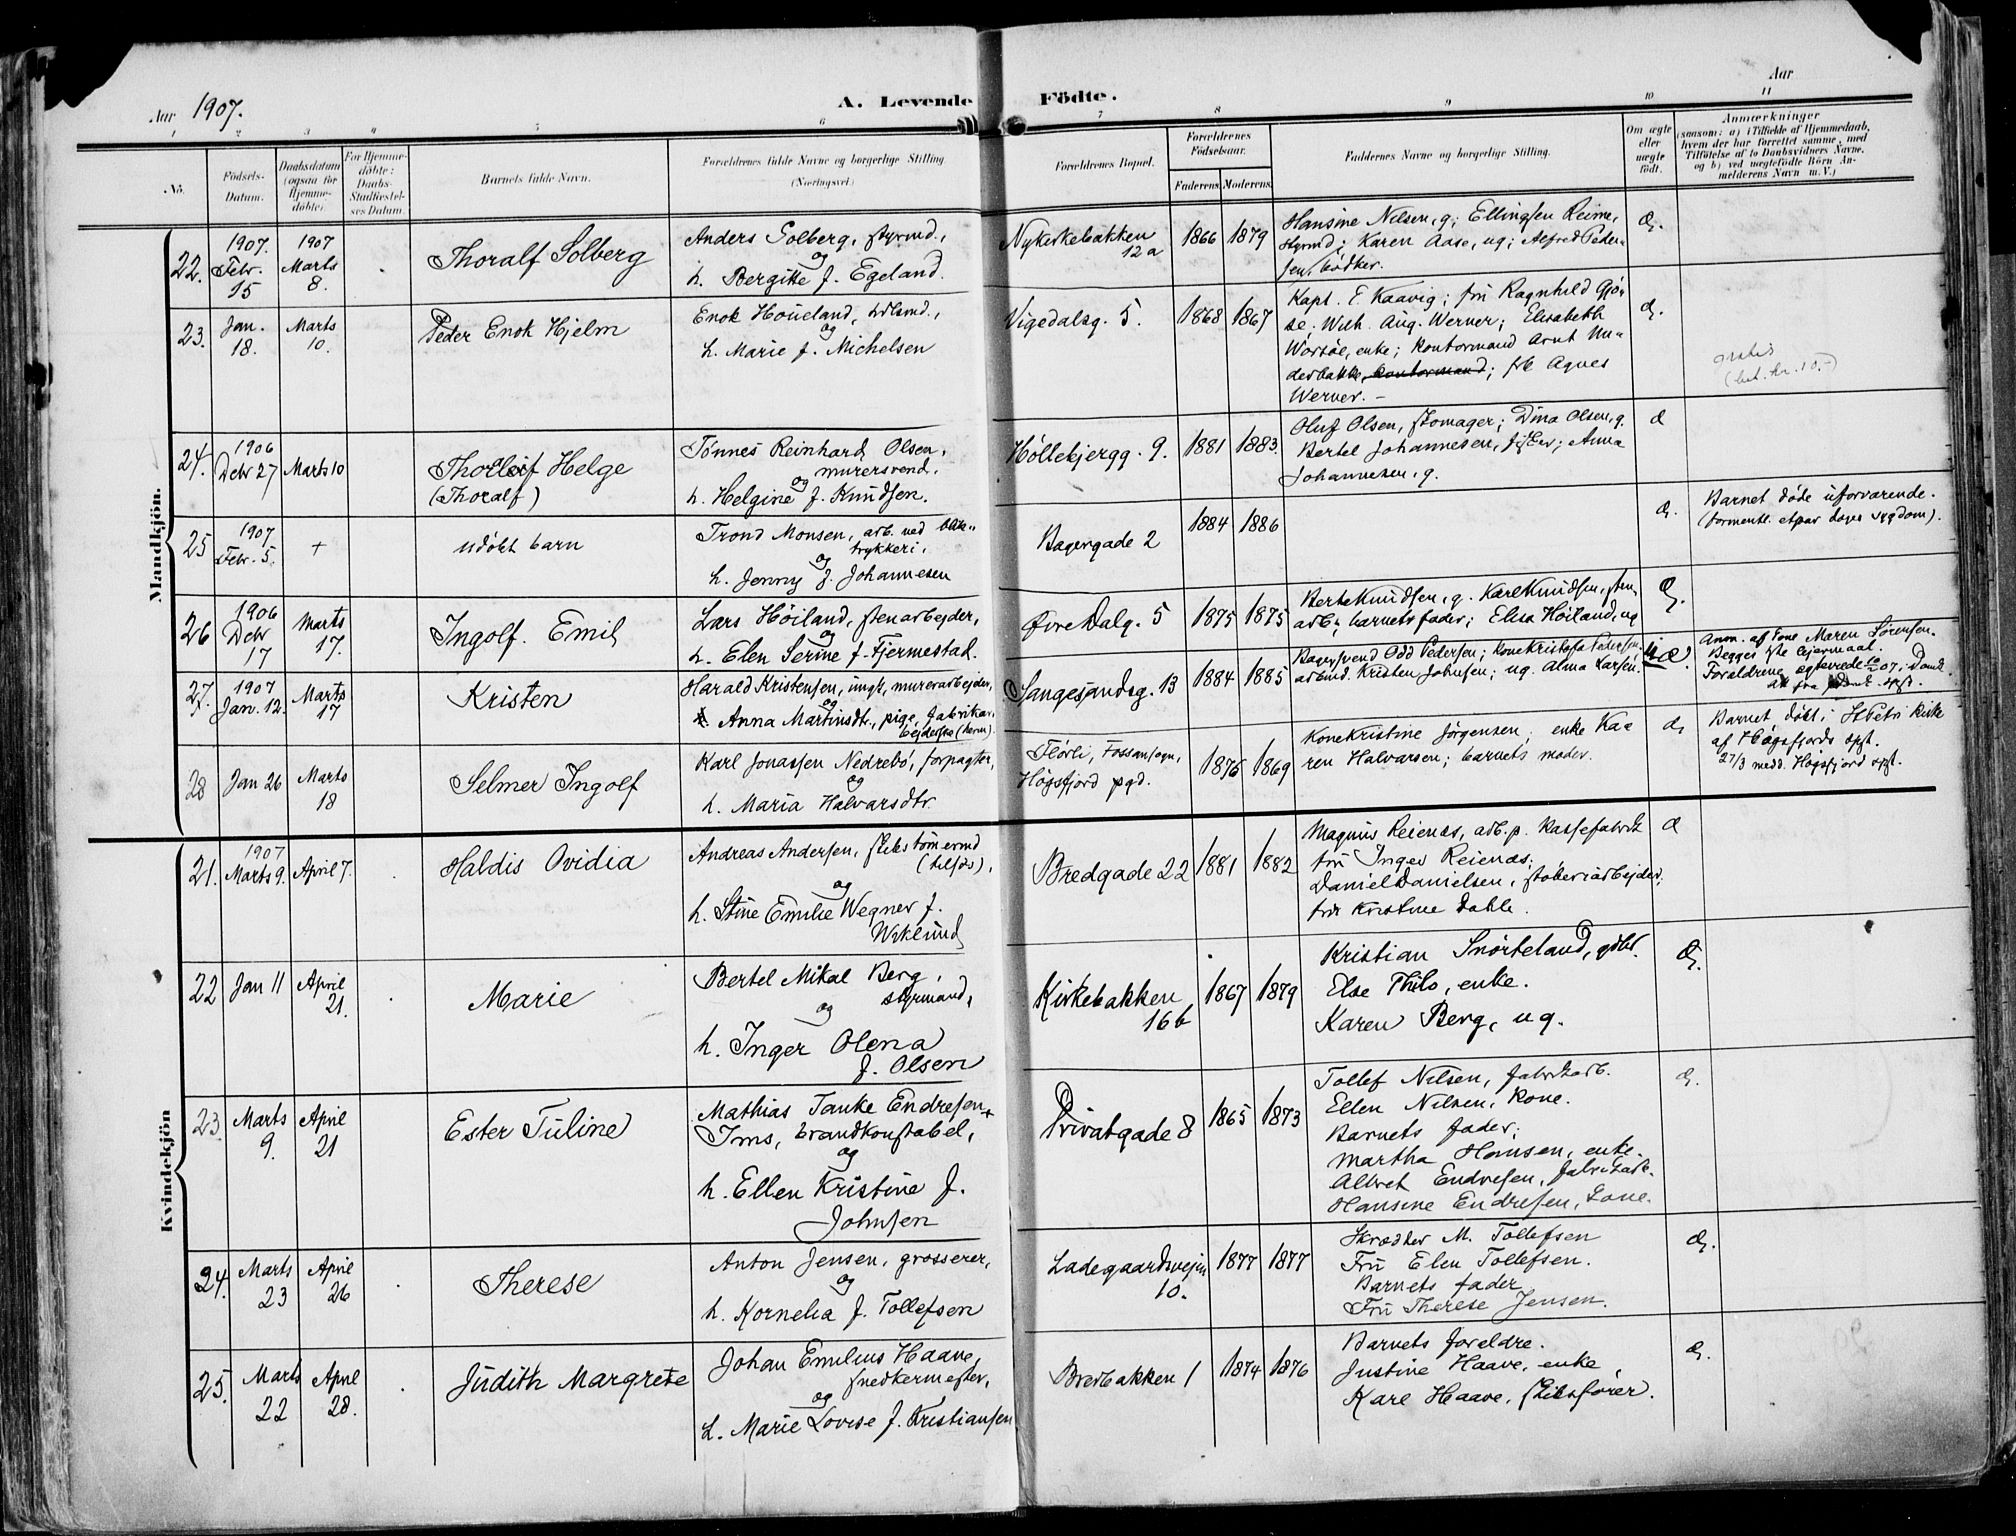 Aar 1907.
A. Levende Födte.
Aar
1 2 3 4 5 6 7 8 9 10 11
No.
Födsels-Datum.
Daabsdatum (ogsaa for Hjemmedöbte).
For Hjemmedöbte: Daabs-Stadfæstelses Datum.
Barnets fulde Navn.
Forældrenes fulde Navne og borgerlige Stilling. (Næringsvei.)
Forældrenes Bopæl.
Forældrenes Födselsaar.
Faderens. Moderens.
Faddernes Navne og borgerlige Stilling.
Om ægte eller uægte födt.
Anmærkninger
(saasom: a) i Tilfælde af Hjemmedaab, hvem der har forrettet samme, med Tilföielse af to Daabsvidners Navne, og b) ved uægtefödte Börn Anmelderens Navn m. V.)
Mandkjön.
22. 1907. Febr. 15
1907 Marts 8.
Thoralf Solberg
Anders Solberg, styrmd.,
og
h. Bergitte f. Egeland.
Nykirkebakken 12a
1866 1879
Hansine Nilsen, g; Ellingsen Reime,
styrmd; Karen Aase, ug; Alfred Peder-
sen, bødker.
Æ.
23. Jan. 18.
Marts 10.
Peder Enok Hjelm
Enok Høueland,
og
h. Marie f. Michelsen
Vigedalsg. 5.
1868 1867
Kapt. E. Kaavig; fru Ragnhild Gjø-
se; Wilh. Aug. Werner; Elisabeth
Worsøe, enke; kontormand Arnt Un-
derbakke, kontormand; frk Agnes
Werner. -
Æ.
gratis
24. 1906 Debr 27
Marts 10
Thorleif Helge
(Thoralf)
Tønnes Reinhard Olsen,
murersvend,
og
h. Helgine f. Knudsen.
Høllebjergg. 9.
1881 1883.
Oluf Olsen, skomager; Dina Olsen, g.
Bertel Johannesen, fisker; Anna
Johannesen, g.
Æ
25 1907. Febr. 5.
+
udøbt barn
Trond Monsen, arb. ved blik-
trykkeri,
og
h. Jenny f. Johannesen
Bagergade 2
1884 1886
Æ.
Barnet døde uforvarende.
(formentl. etpar dages sygdom).
26 1906 Debr 17
Marts 17.
Ingolf Emil
Lars Höiland, stenarbejder,
og
h. Elen Serine f. Fjermestad.
Øvre Dalg. 5
1875 1875
Berte Knudsen, g. Karl Knudsen, sten-
arb; barnets fader; Elisa Høiland, ug
Æ.
27. 1907 Jan. 12.
Marts 17
Kristen
Harald Kristensen, ungk, murerarbejder,
og
Anna Martinsdt., pige, fabrikar-
bejderske (herm).
Sangesandsg. 13
1884 1885
Bagersvend Odd Pedersen; Kone Kristofa Pedersen
arbmd. Kristen Johnsen; ug. Alma Larsen.
uæ.
Anm. af kone Maren Sørensen.
Begges 1ste lejermaal.
28 Jan 26
Marts 18
Selmer Ingolf
Karl Jonassen Nedrebö, forpagter,
og
h. Maria Halvarsdtr.
Flörli, Fossansogn,
Høgsfjord pgd.
1876 1869
Kone Kristine Jørgensen, enke Kaa
ren Halvarsen; barnets moder.
Æ
Barnet døbt i St Petri kirke
af Høgsfjords spt.
27/3 medd. Høgsfjord spt.
Kvindekjön
21. 1907 Marts 9.
April 7.
Haldis Ovidia
Andreas Andersen, skibstømermd
og
h. Stine Emilie Wegner f.
Wiklund
Bredgade 22
1881 1882
Magnus Reienæs, arb. p. kassefabrik
fru Inger Reienæs;
Daniel Danielsen, støberiarbejder;
frk Kristine Dahle.
Æ
22 Jan 11
April 21.
Marie
Bertel Mikal Berg,
styrmand,
og
h. Inger Olena
f. Olsen
Kirkebakken 16b
1867 1879
Kristian Snørteland, gdbr.
Else Thilo, enke.
Karen Berg, ug.
Æ.
23. Marts 9.
April 21
Ester Tuline
Mathias Tanke Endresen
Ims, brandkonstabel,
og
h. Ellen Kristine f.
Johnsen
Privatgade 8
1865 1873
Tollef Nilsen, fabrikarb.
Ellen Nilsen, kone.
Barnets fader;
Martha Hansen, enke.
Albret Endresen, fabrikarb.
Hansine Endresen, kone.
Æ.
24. Marts 23
April 26
Therese
Anton Jensen, grosserer,
og
h. Kornelia f. Tollefsen
Ladegaardsvejen 10.
1877 1877
Skrædder M. Tollefsen
Fru Elen Tollefsen.
Barnets fader
Fru Therese Jensen.
Æ.
25. Marts 22
April 28.
Judith Margrete
Johan Emilius Haave,
snedkermester,
og
h. Marie Lovise f. Kristiansen
Bredbakken 1
1874 1876
Barnets foreldre.
Justine Haave, enke,
Karl Haave, skibsfører.
Æ.